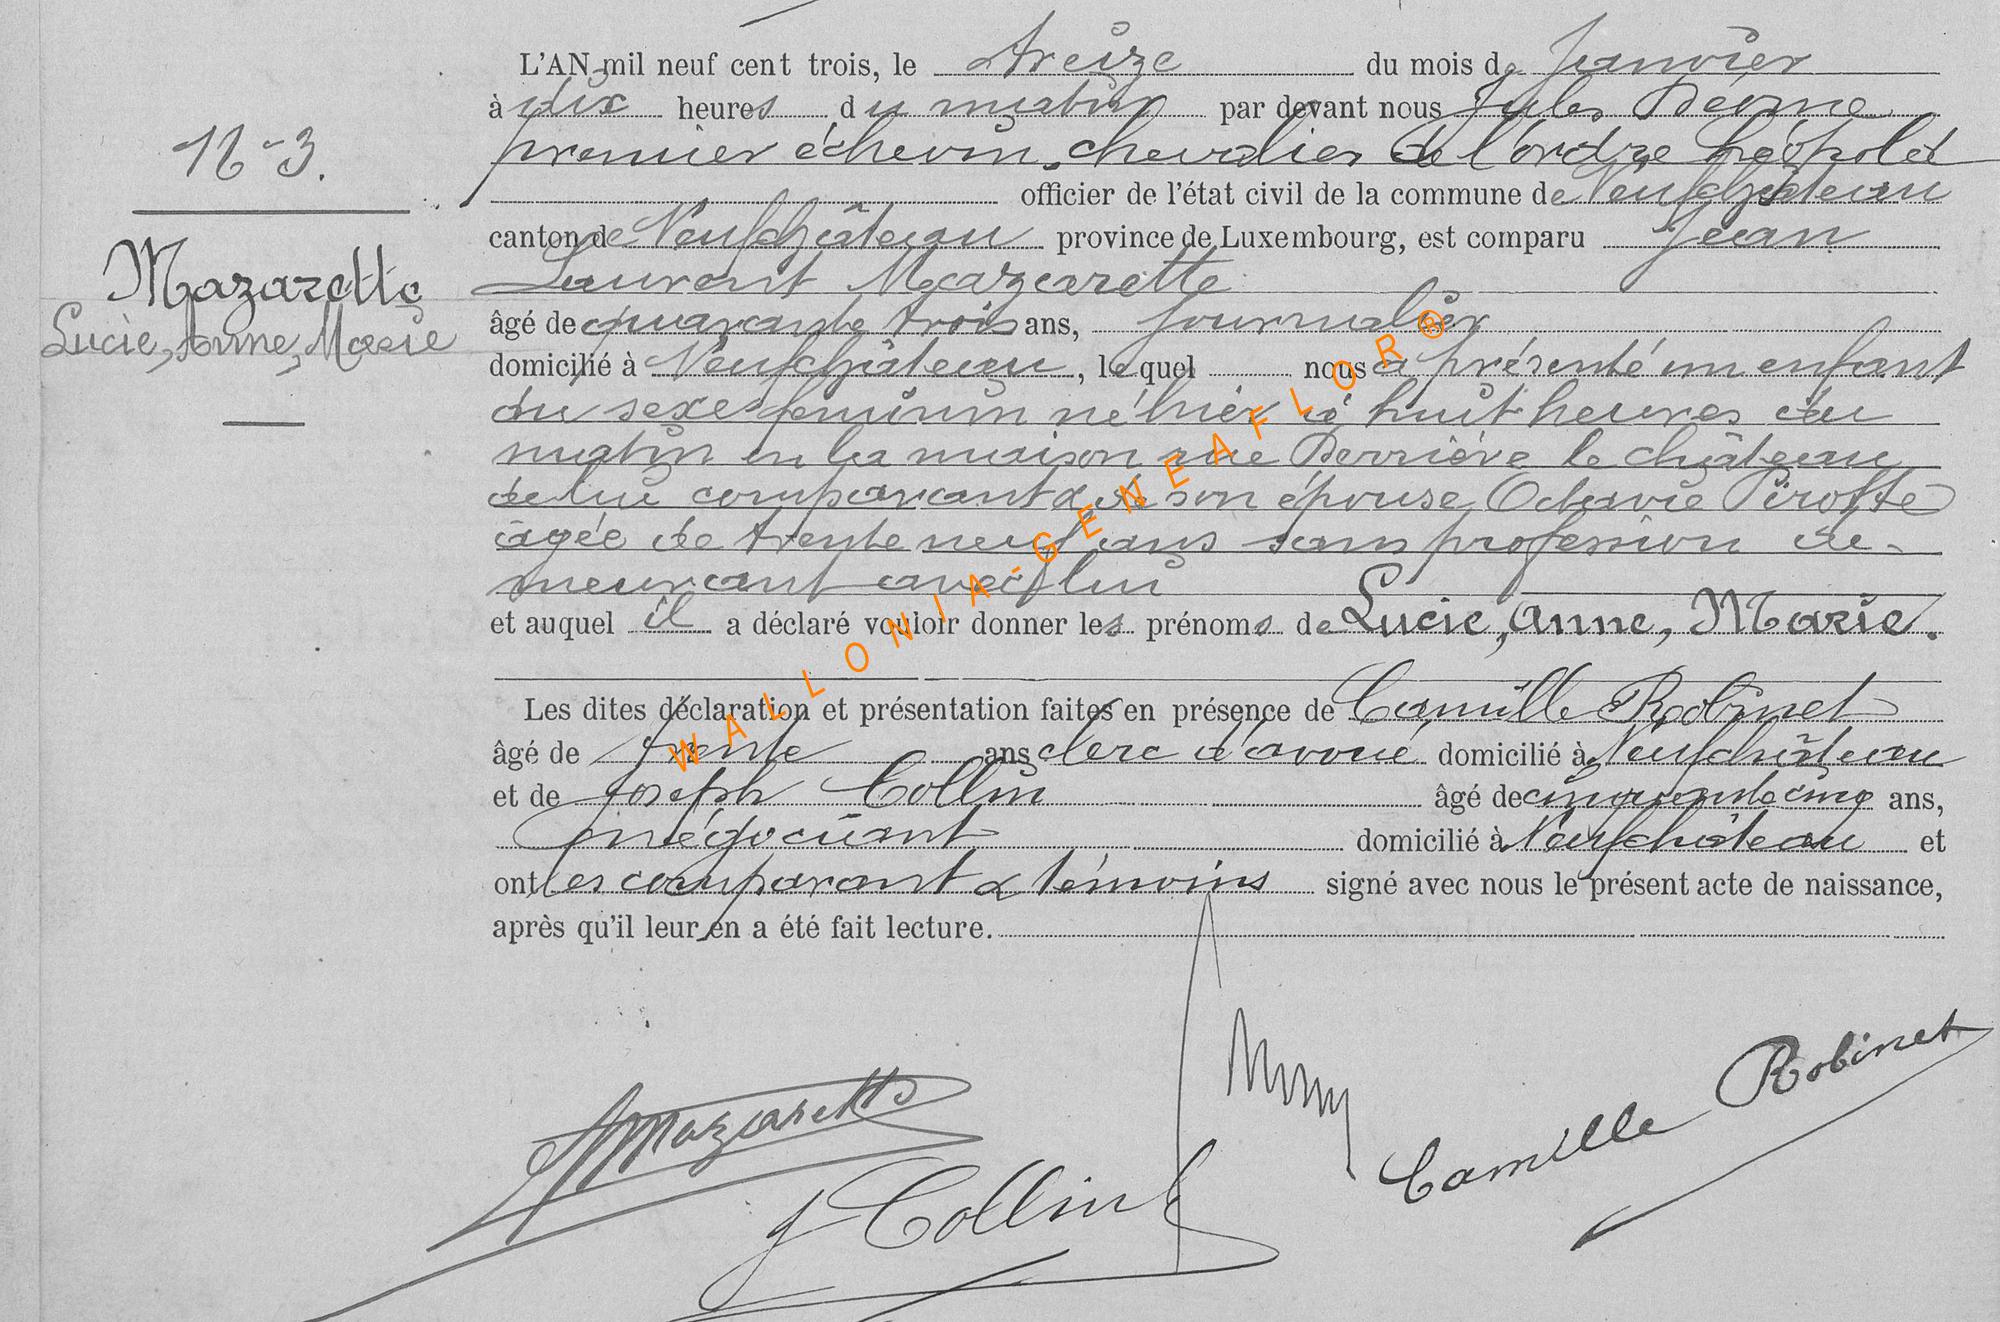 N° 3.
Mazarette
Lucie, Anne, Marie
L'AN mil neuf cent trois, le treize du mois de Janvier
à dix heures du matin par devant nous Jules
premier échevin, chevalier de l'ordre Léopold
officier de l'état civil de la commune de Neufchâteau
canton de Neufchâteau province de Luxembourg, est comparu Jean
Laurent Mazarette
âgé de quarante trois ans, journalier
domicilié à Neufchâteau, lequel nous a présenté un enfant
du sexe feminin né hier à huit heures du
matin en la maison rue Derrière le château
de lui comparant & de son épouse Octavie Pirotte
agée de trente neuf ans sans profession de-
meurant avec lui
et auquel il a déclaré vouloir donner les prénoms de Lucie, Anne, Marie.
Les dites déclaration et présentation faites en présence de Camille Robinet
âgé de trente ans clerc d'avoué domicilié à Neufchâteau
et de Joseph Collin âgé de cinquante cinq ans,
négociant domicilié à Neufchâteau et
ont les comparant & témoins signé avec nous le présent acte de naissance,
après qu'il leur en a été fait lecture.
Mazarette
J Collin
Camille Robinet
WALLONIA-GENEAFLOR®